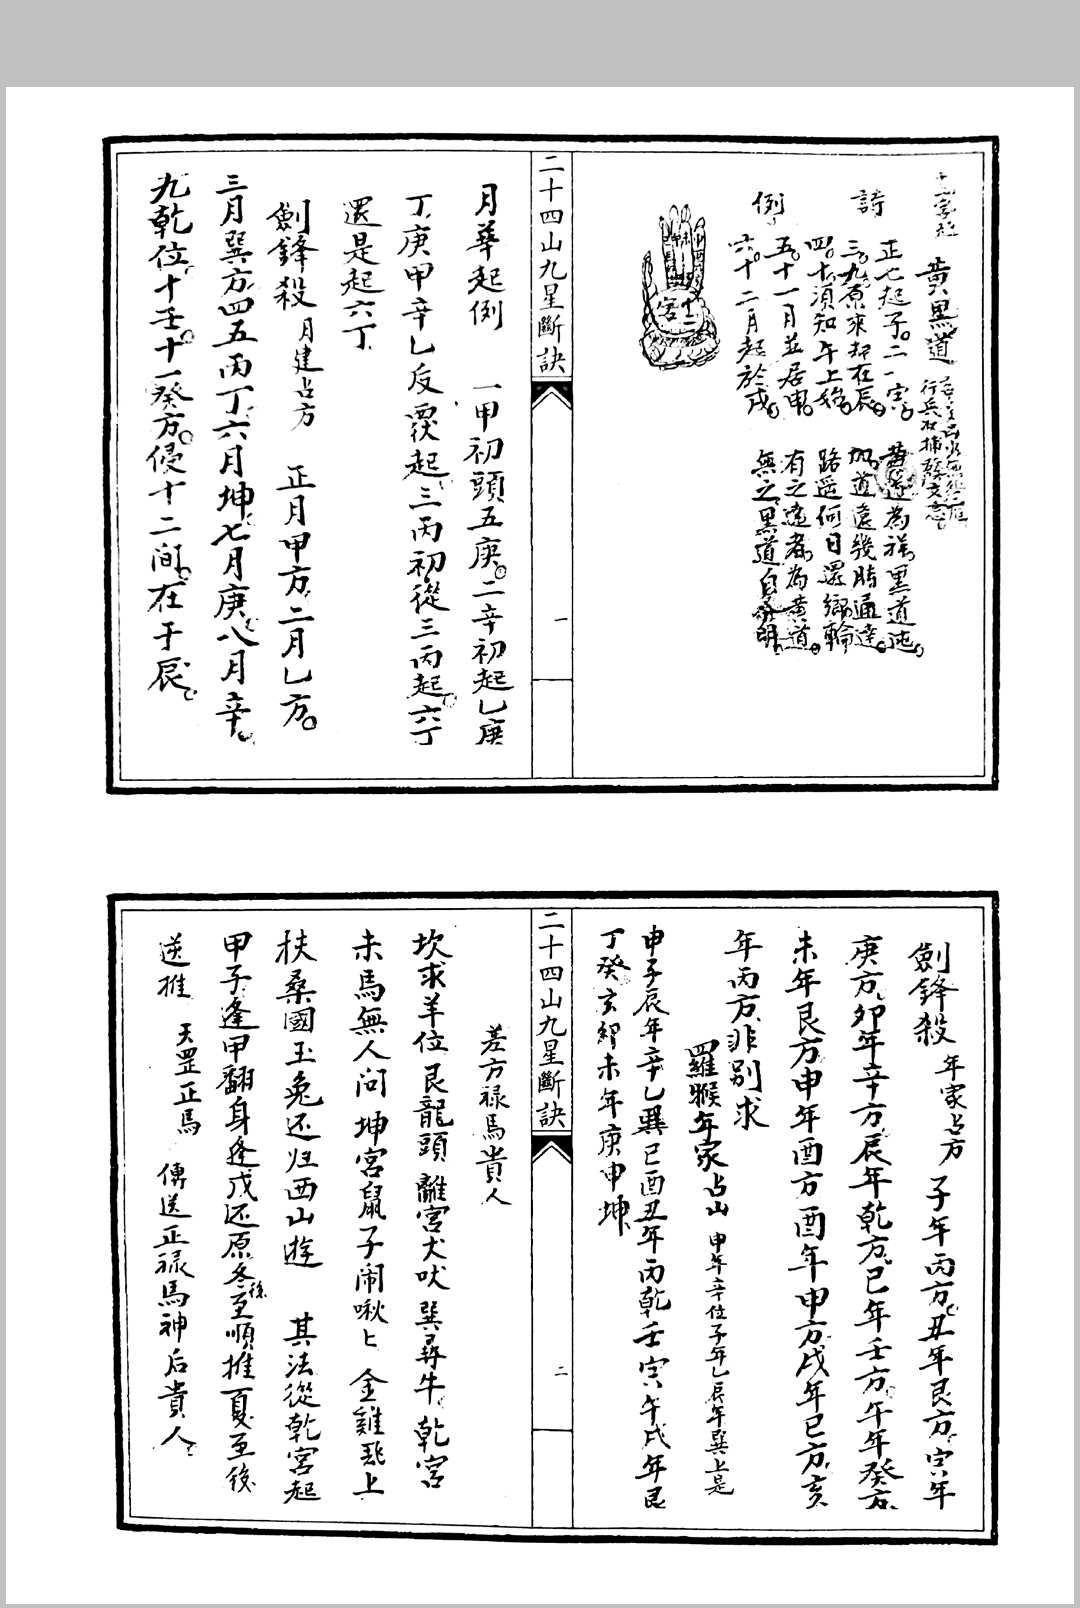 黃黑道
行兵收捕
詩
例
正七起子。二八寅。 黃道為祥。黑道凶。
三九原來却在辰。 道遠幾時通達。
四十須知午上始。 路遥何日還鄉
五十一月並居申。 有之遶者為黃道。
六十二月起於戌。 無之黑道自分明。
二十四山九星斷訣
一
月華起例 一甲初頭五庚。二辛初起乙庚
丁庚甲辛乙反覆起。三丙初從三丙起。六丁
還是起六丁
劍鋒殺 月建占方 正月甲方二月乙方。
三月巽方四五丙丁六月坤七月庚八月辛。
九乾位十壬十一癸方。侵十二間在于辰。
劍鋒殺 年家占方 子年丙方。丑年艮方寅年
庚方卯年辛方辰年乾方巳年壬方午年癸方
未年艮方申年酉方酉年申方戌年巳方亥
年丙方非別求
羅猴年家占山 申年辛位子年乙辰年巽上是
申子辰年辛乙巽巳酉丑年丙乾壬寅午戌年艮
丁癸亥卯未年庚申坤
二十四山九星斷訣
二
差方祿馬貴人
坎求羊位艮龍頭離宮犬吠巽尋牛乾宮
未馬無人问坤宮鼠子闹啾々金雞飛上
扶桑國玉兔还归西山遊 其法從乾宮起
甲子逢甲翻身逢戊还原冬至後順推夏至後
逆推 天罡正馬 傳送正祿馬神后貴人